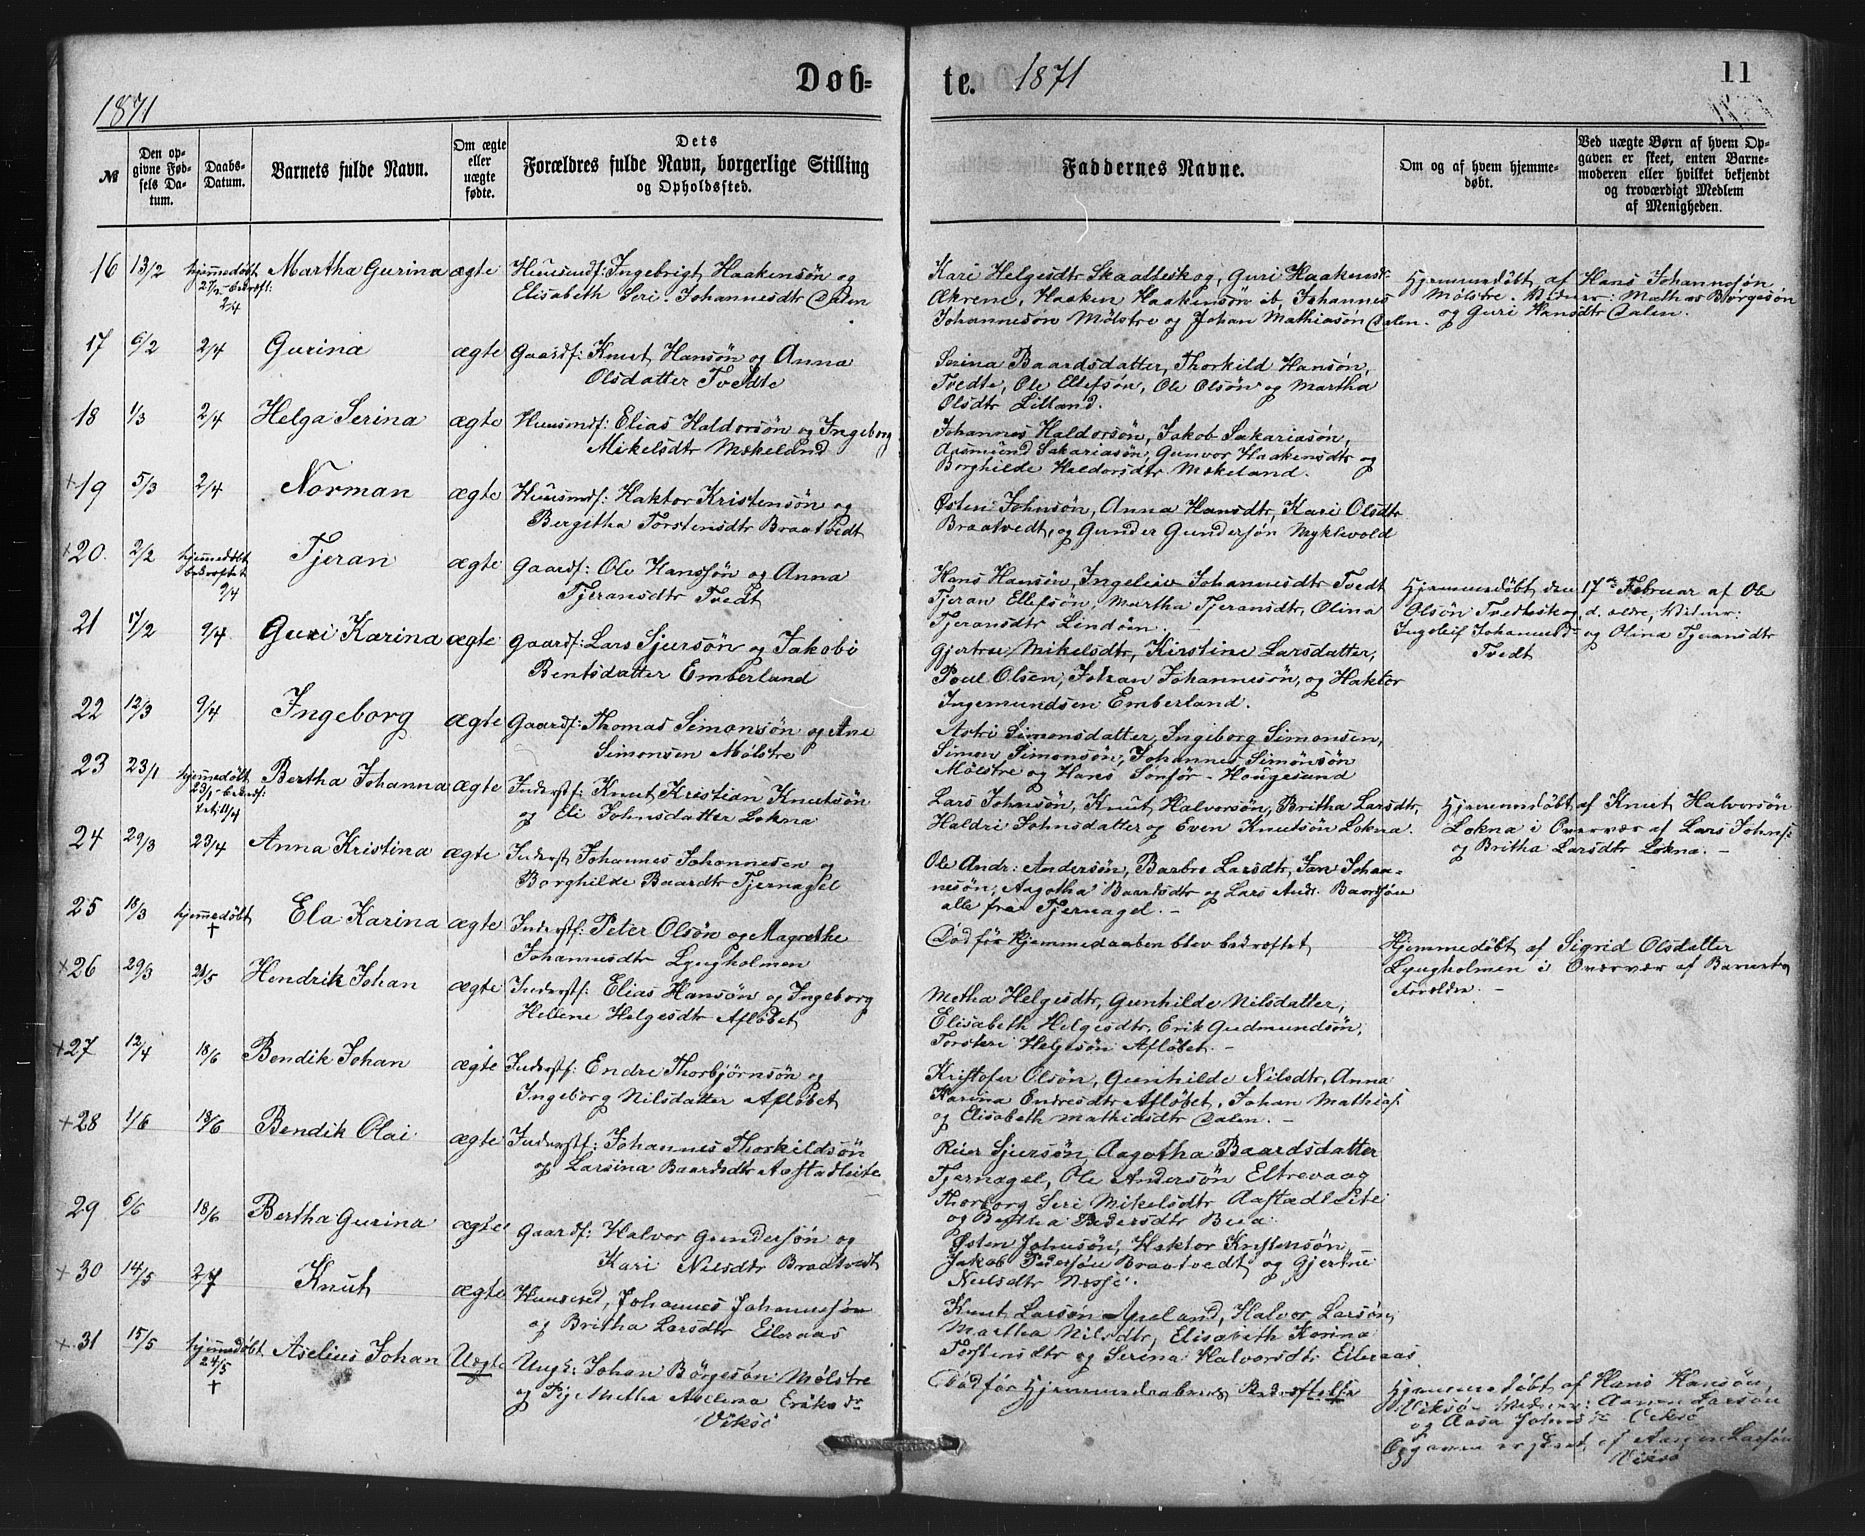 Døb=
te. 1871
11
1871
№
Den op-
givne Fød-
sels Da-
tum.
Daabs-
Datum.
Barnets fulde Navn.
Om ægte
eller
uægte
fødte.
Dets
Forældres fulde Navn, borgerlige Stilling
og Opholdssted.
Faddernes Navne.
Om og af hvem hjemme-
døbt.
Ved uægte Børn af hvem Op-
gaven er skeet, enten Barne-
moderen eller hvilket bekjendt
og troværdigt Medlem
af Menigheden.
16 13/2 hjemmedøbt Martha Gurina ægte Huusmdf: Ingebrigt Haakensøn og
2/4 Elisabeth Seri Johannesdtr Dalen
Kari Helgesdtr Skaatteskog, Guri Haakensdr
Økrene, Haaken Haakensøn ib, Johannes
Johannesøn Mølstre og Johan Mathiasøn Dalen.
Hjemmedøbt af Hans Johannesøn
Mølstre. Vidner: Mathias Børgesøn
og Guri Hansdtr Dalen.
17 6/2 2/4 Gurina ægte Gaardf: Knut Hansøn og Anna
Olsdatter Tvedte
Serina Baardsdatter, Thorkild Hansøn,
Tvedte, Ole Ellefsøn, Ole Olsøn og Martha
Olsdtr Lilland.
18 1/3 2/4 Helga Serina ægte Huusmdf: Elias Haldorsøn og Ingeborg
Mikelsdtr Mækeland
Johannes Haldorsøn, Jakob Sakariasøn,
Aasmund Sakariasøn, Gunvor Haakensdtr og
Borghilde Haldorsdtr Mækeland.
+19 5/3 2/4 Norman ægte Huusmdf: Haktor Kristensøn og
Bergitha Torstensdtr Braatvedt
Østen Johnsøn, Anna Hansdtr, Kari Olsdtr
Braatvedt, og Gunder Gundersøn Myklevold
+20. 2/2 hjemmedøbt Tjeran ægte Gaardf: Ole Hanssøn og Anna
bekræftet
9/4 Tjeransdtr Tvedt
Hans Hansøn, Ingeleiv Johannesdtr Tvedt
Tjeran Ellefsøn, Martha Tjeransdtr, Olina
Tjeransdtr Lindøen.
Hjemmedøbt den 17de Februar af Ole
Olsøn Tvedteskog, d. ældre, Vidner:
Ingeleif Johannesdr og Olina Tjeransdtr
Tvedt
21 17/2 9/4. Guri Karina ægte Gaardf: Lars Sjursøn og Jakobi
Bentsdatter Emberland
Gjertrue Mikelsdtr, Kirstine Larsdatter,
Poul Olsen, Johan Johannesøn, og Haktor
Ingemundsen Emberland.
22 12/3 9/4 Ingeborg ægte Gaardf: Thomas Simonsøn og Ane
Simonsen Mølstre
Astri Simonsdatter, Ingiborg Simonsen,
Simon Simonsøn, Johannes Simonsøn
Mølstre og Hans Haugesund
23 23/1 hjemmedøbt Bertha Johanna ægte Inderstf: Knut Kristian Knutsøn
og Eli Johnsdatter Lokna
Lars Johnsøn, Knut Halvorsøn, Britha Larsdtr,
Haldri Johnsdatter og Even Knutsøn Lokna.
Hjemmedøbt af Knut Halvorsøn
Lokna i Overvær af Lars Johns:
og Britha Larsdtr Lokna. –
24 29/3 23/4 Anna Kristina ægte Inderst Johannes Johannesen og
Borghilde Baardtr Tjernagel
Ole Andr: Andersøn, Barbro Larsdtr, Jan Johan-
nesøn, Aagotha Baardsdtr og Lars Andr. Baardsøn
alle fra Tjernagel. –
25 18/3 hjemmedøbt Ela Karina ægte Inderstf: Peter Olsøn og Magrethe
† Johannesdtr Lyngholmen
Død før Hjemmedaaben blev bekræftet
Hjemmedøbt af Sigrid Olsdatter
Lyngholmen i Overvær af Barnets
Forældre. –
+26 29/3 21/5 Hendrik Johan ægte Inderstf: Elias Hansøn og Ingeborg
Helene Helgesdtr Afløbet
Metha Helgesdtr, Gunhilde Nilsdatter,
Elisabeth Helgesdtr, Erik Gudmundsøn,
Torsten Helgesøn Afløbet. –
+27 12/4 18/6 Bendik Johan ægte Inderstf: Endre Thorbjørnsøn og
Ingeborg Nilsdatter Afløbet
Kristofer Olsøn, Gunhilde Nilsdtr, Anna
Karina Endresdtr Afløbet, Johan Mathias:
og Elisabeth Mathiasdtr Dalen. –
+28 1/6 18/6 Bendik Olai ægte Inderstf: Johannes Thorkildsøn
og Larsina Baardsdtr Aastadleite
Reier Sjursøn, Aagotha Baardsdatter
Tjernagel, Ole Andersøn Eltrevaag
Thorborg Seri Mikelsdtr Aastadleite
og Bertha Pedersdtr Bua
29 6/6 18/6 Bertha Gurina ægte Gaardf: Halvor Gundersøn og
Kari Nilsdtr Braatvedt
Østen Johnsøn, Haktor Kristensøn
Jakob Pedersøn Braatvedt og Gjertrue
Nilsdtr Næssje.
+30 14/5 2/7 Knut ægte Huusmd, Johannes Johannesøn
og Britha Larsdtr Eileraas
Knut Larsøn, Halvor Larsøn,
Martha Nilsdtr, Elisabeth Korina
Torstensdtr og Serina Halvorsdtr Eileraas.
+31 15/5 hjemmedøbt Aselius Johan Uægte Ungk: Johan Børgesøn Mølstre
24/5
† og Pige Metha Aselena Eriksdr
Viksø
Død før Hjemmedaabens Bekræftelse
Hjemmedøbt af Hans Hansøn
Viksø. Vidner: Aamen Larsøn
og Aasa Johnsdr Viksø
Opgaven er skeet af Aamen Larsøn
Viksø